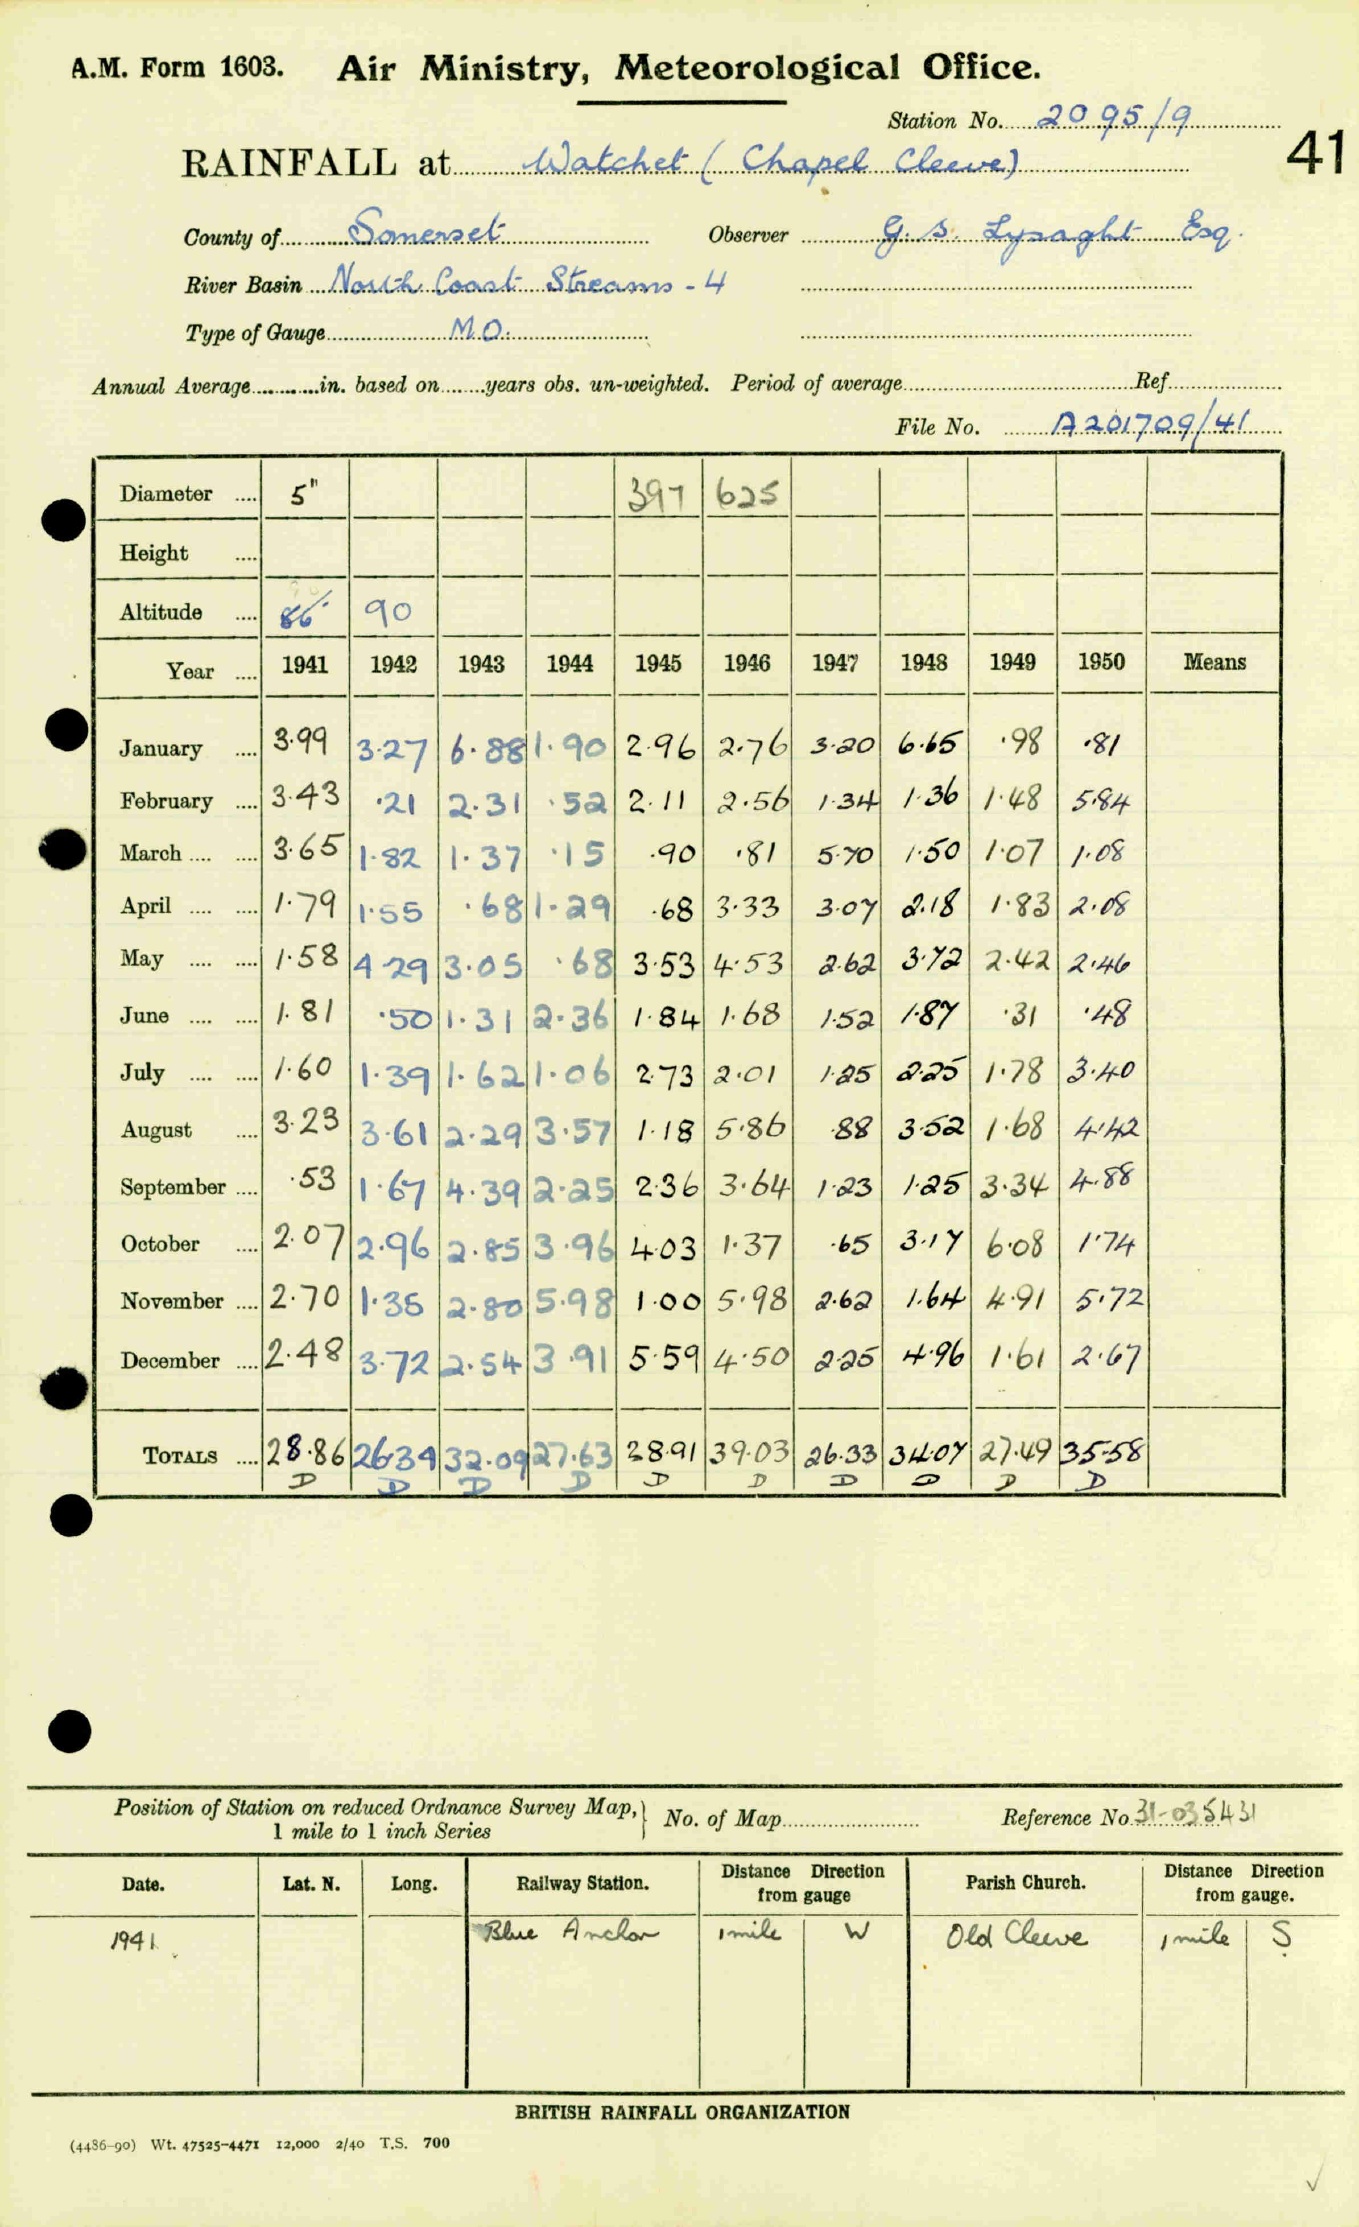 A.M. Form 1603. Air Ministry, Meteorological Office.
Station No. 2095/9
41
RAINFALL at Watchet (Chapel Cleeve)
County of Somerset Observer G. S. Lysaght Esq.
River Basin North Coast Streams - 4
Type of Gauge M.O.
Annual Average in. based on years obs. un-weighted. Period of average Ref
File No. A201709/41
Diameter 5" 397 625
Height
Altitude 86' 90
Year 1941 1942 1943 1944 1945 1946 1947 1948 1949 1950 Means
January 3.99 3.27 6.88 1.90 2.96 2.76 3.20 6.65 .98 .81
February 3.43 .21 2.31 .52 2.11 2.56 1.34 1.36 1.48 5.84
March 3.65 1.82 1.37 .15 .90 .81 5.70 1.50 1.07 1.08
April 1.79 1.55 .68 1.29 .68 3.33 3.07 2.18 1.83 2.08
May 1.58 4.29 3.05 .68 3.53 4.53 2.62 3.72 2.42 2.46
June 1.81 .50 1.31 2.36 1.84 1.68 1.52 1.87 .31 .48
July 1.60 1.39 1.62 1.06 2.73 2.01 1.25 2.25 1.78 3.40
August 3.23 3.61 2.29 3.57 1.18 5.86 .88 3.52 1.68 4.42
September .53 1.67 4.39 2.25 2.36 3.64 1.23 1.25 3.34 4.88
October 2.07 2.96 2.85 3.96 4.03 1.37 .65 3.17 6.08 1.74
November 2.70 1.35 2.80 5.98 1.00 5.98 2.62 1.64 4.91 5.72
December 2.48 3.72 2.54 3.91 5.59 4.50 2.25 4.96 1.61 2.67
TOTALS 28.86 26.34 32.09 27.63 28.91 39.03 26.33 34.07 27.49 35.58
D D D D D D D D D D
Position of Station on reduced Ordnance Survey Map, 1 mile to 1 inch Series } No. of Map Reference No 31-035431
Date. Lat. N. Long. Railway Station. Distance Direction from gauge Parish Church. Distance Direction from gauge.
1941 Blue Anchor 1 mile W Old Cleeve 1 mile S
BRITISH RAINFALL ORGANIZATION
(4486-90) Wt. 47525-4471 12,000 2/40 T.S. 700